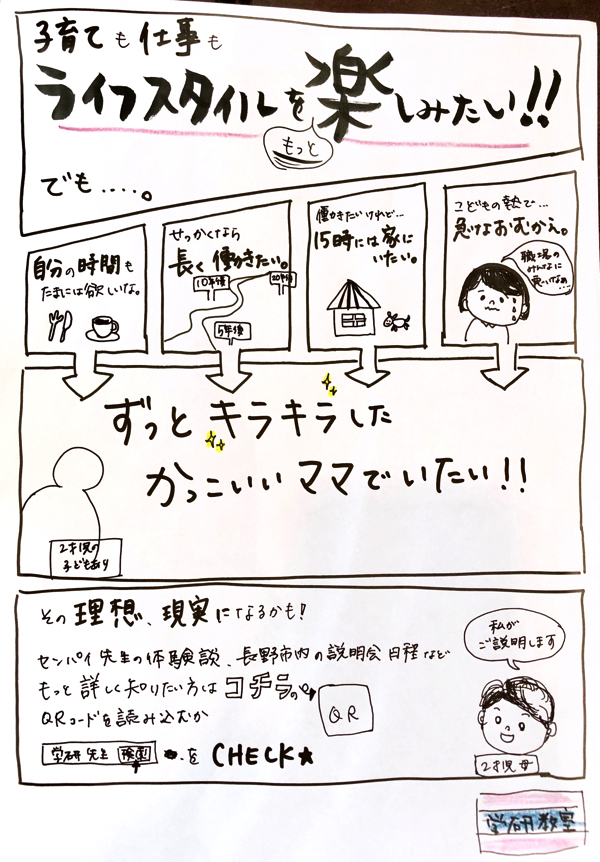 子育ても仕事も
ライフスタイルを楽しみたい!!
もっと
でも....。
自分の時間も
たまには欲しいな。
せっかくなら
長く働きたい。
10年後
20年後
5年後
働きたいけれど...
15時には家に
いたい。
こどもの熱で...
急なおむかえ。
職場の
みんなに
悪いなぁ...
ずっとキラキラした
かっこいいママでいたい!!
2才児の
子どもあり
その理想、現実になるかも!
センパイ先生の体験談、長野市内の説明会日程など
もっと詳しく知りたい方はコチラの
QRコードを読み込むか
QR
学研 先生 検索 を CHECK★
私が
ご説明します
2才児母
学研教室